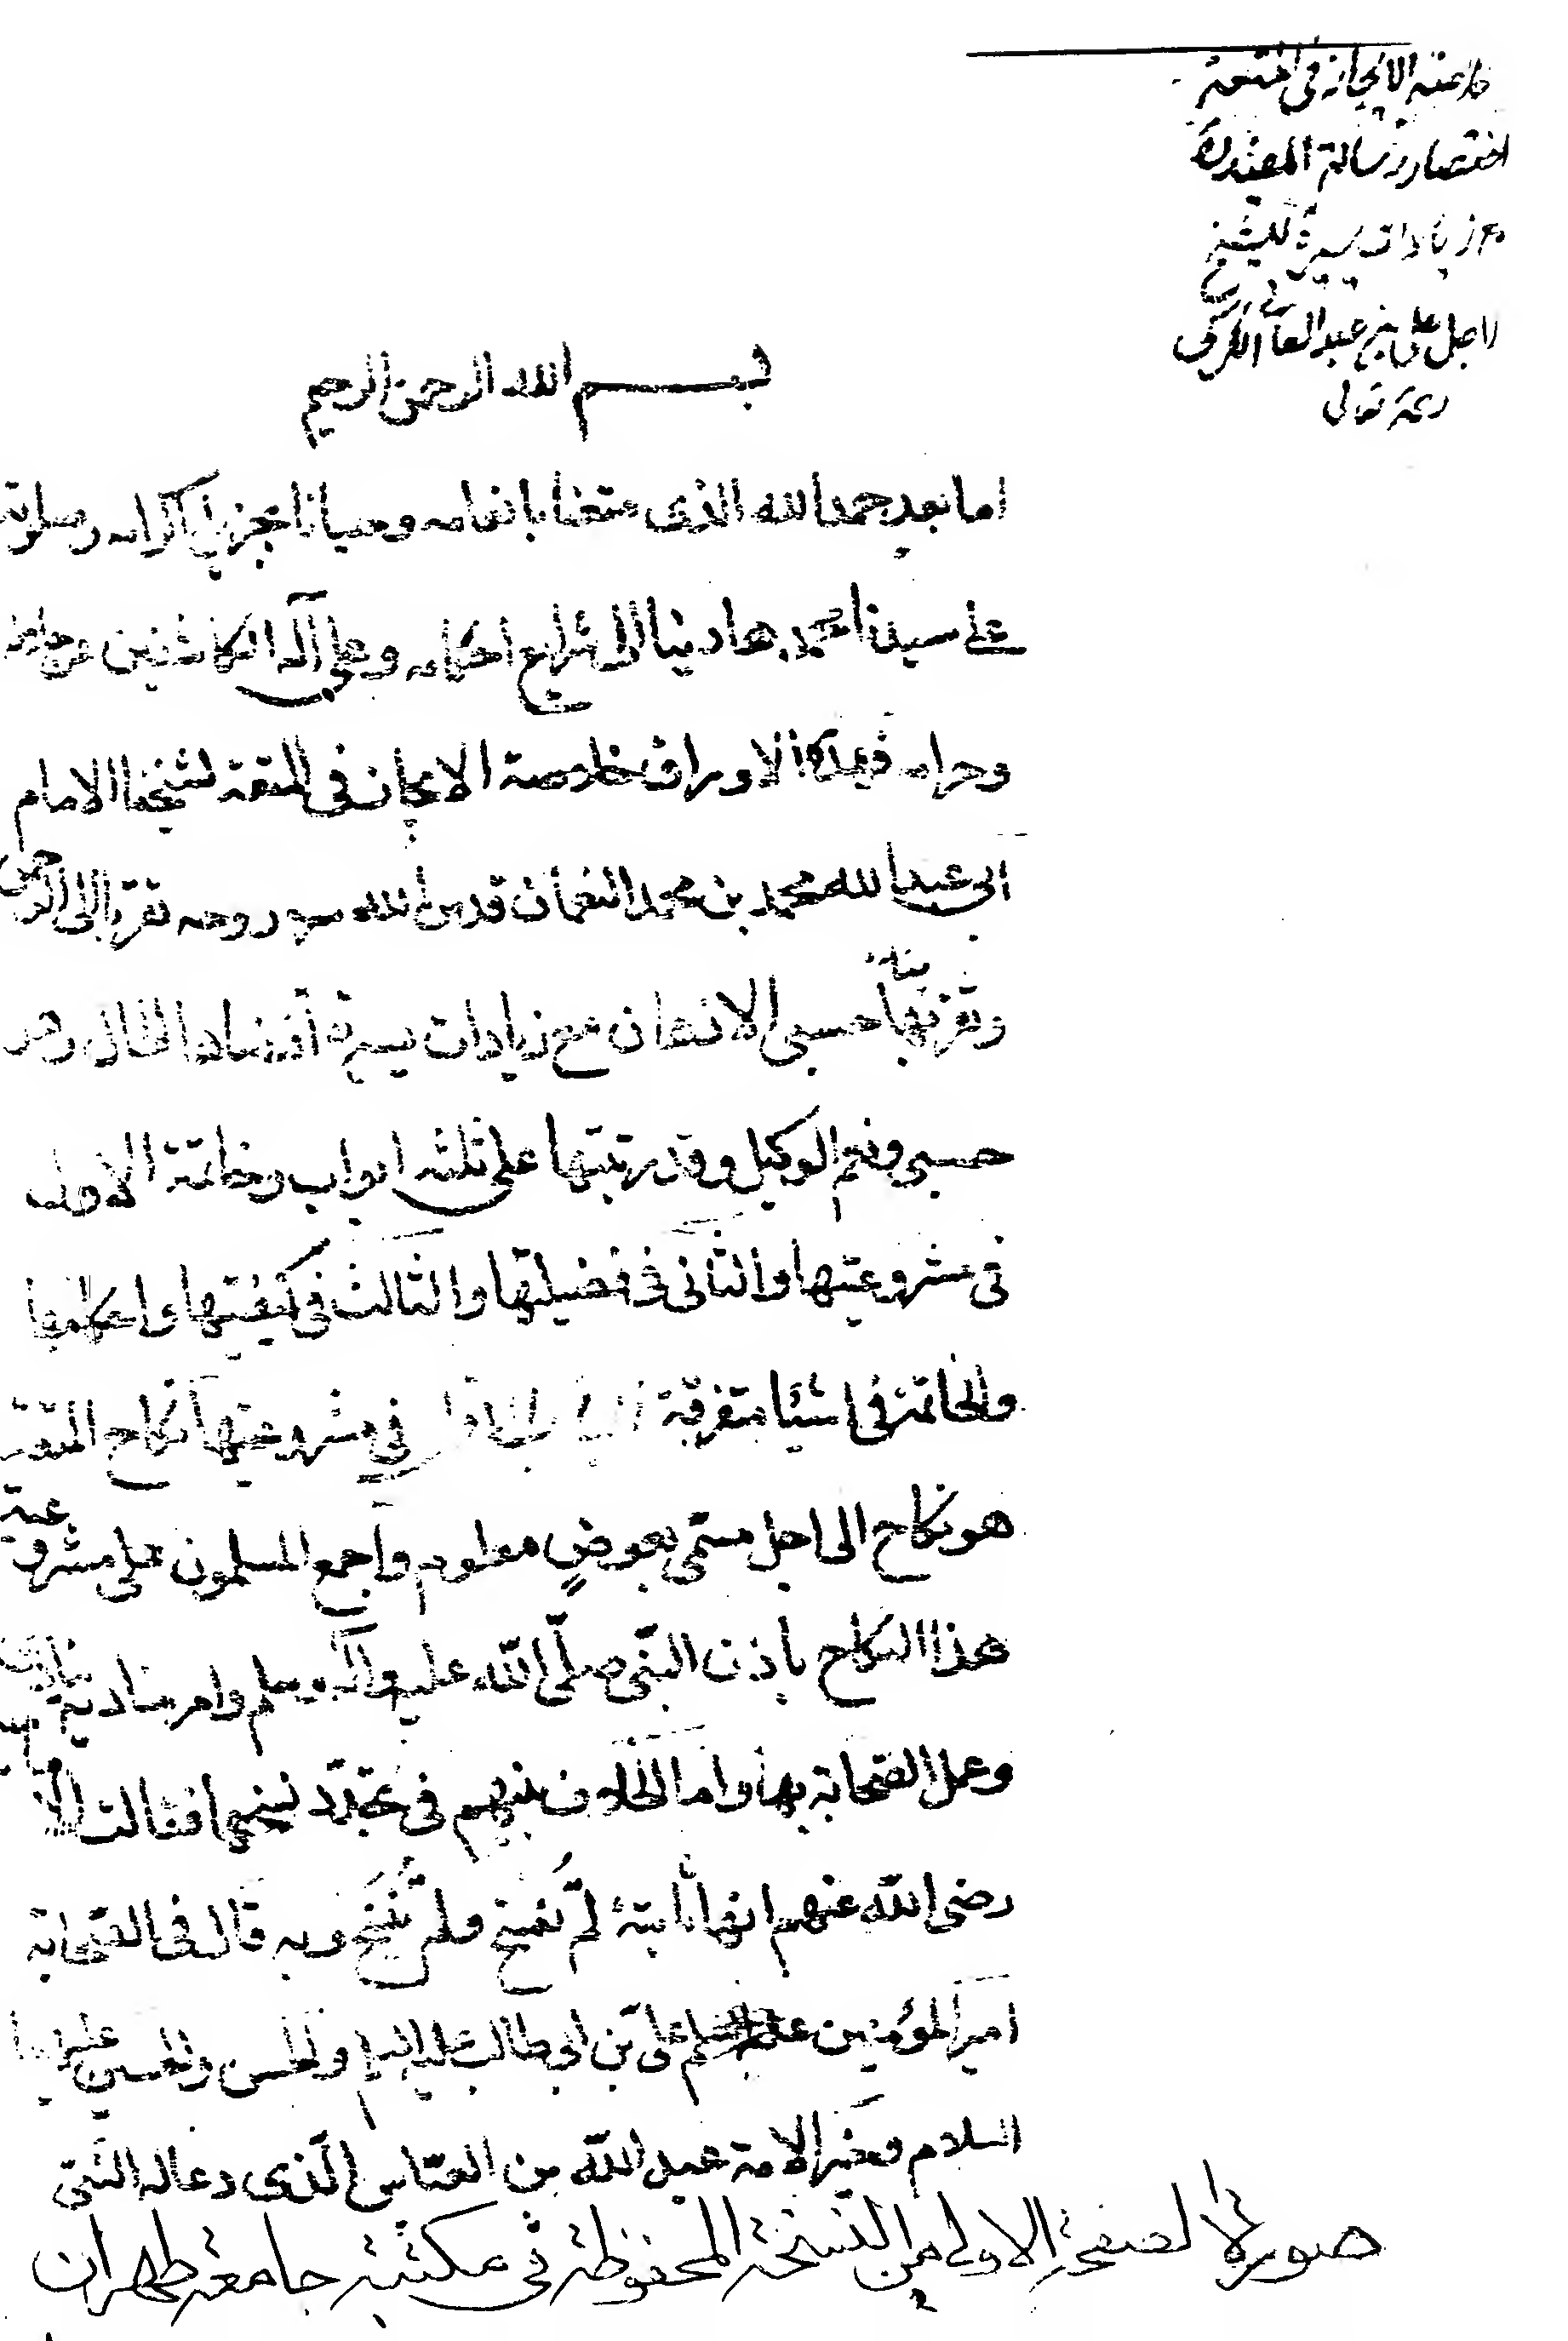 خلاصة الايجاز في المتعة
اختصار رسالة المفيدرة
مع زيادات يسيرة للشيخ
الاجل علي بن عبد العالي الكركي
رحمة تعالى
بسم الله الرحمن الرحيم
اما بعد حمد الله الذى متعنا بانعامه وحبانا بجزيل اكرامه وصلوته
على سيدنا محمد هادينا الى شرايع احكامه وعلى آله الكاشفين عن حلاله
وحرامه فهذه الاوراق خلاصة الايجاز في المتعة لشيخنا الامام
ابى عبد الله محمد بن محمد النعمان قدس الله روحه تقربا الى الرحمن
حسبى الاذهان مع زيادات يسيرة اقتضاها الحال وهو
حسبى ونعم الوكيل وقد رتبتها على ثلثة ابواب وخاتمة الاول
فى مشروعيتها والثانى فى فضيلتها والثالث فى كيفيتها واحكامها
والخاتمة فى اشيئا متفرقة الباب الاول في مشروعيتها نكاح المتعة
هو نكاح الى اجل مسمّى بعوضٍ معلوم واجمع المسلمون على مشروعية
هذا النكاح باذن النبّى صلّى اللّه عليه وآله وسلم وامر مناديه
وعمل الصّحابة بها وامّا الخلاف بينهم فى تجدّد نسخها فقالت
رضى اللّه عنهم انها ثابتة لم تُنسخ ولم تُنسَخ وبه قال فى الصّحابة
امير المؤمنين علىّ بن ابي طالب عليه السلم والحسن والحسين عليهما
السلام وحبر الامة عبد اللّه بن العبّاس الّذى دعا له النّبىّ
صورة الصفحة الاولى من النسخة المحفوظة في مكتبة جامعة طهران